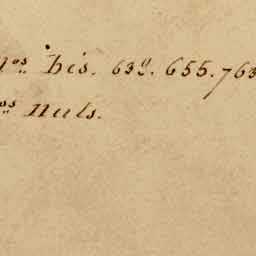 nos bis. 639. 655. 763
os nuls.